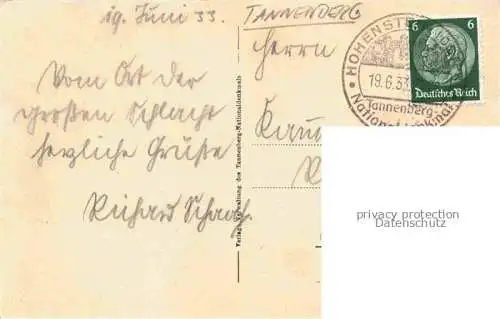 19. Juni 33.
TANNENBERG
Vom Ort der
großen Schlacht
herzliche Grüße
Richard Schach.
Verlag: Verwaltung des Tannenberg-Nationaldenkmals
Herrn
HOHENST
19.6.33
Tannenberg-
National
6 6
Deutsches Reich
privacy protection
Datenschutz